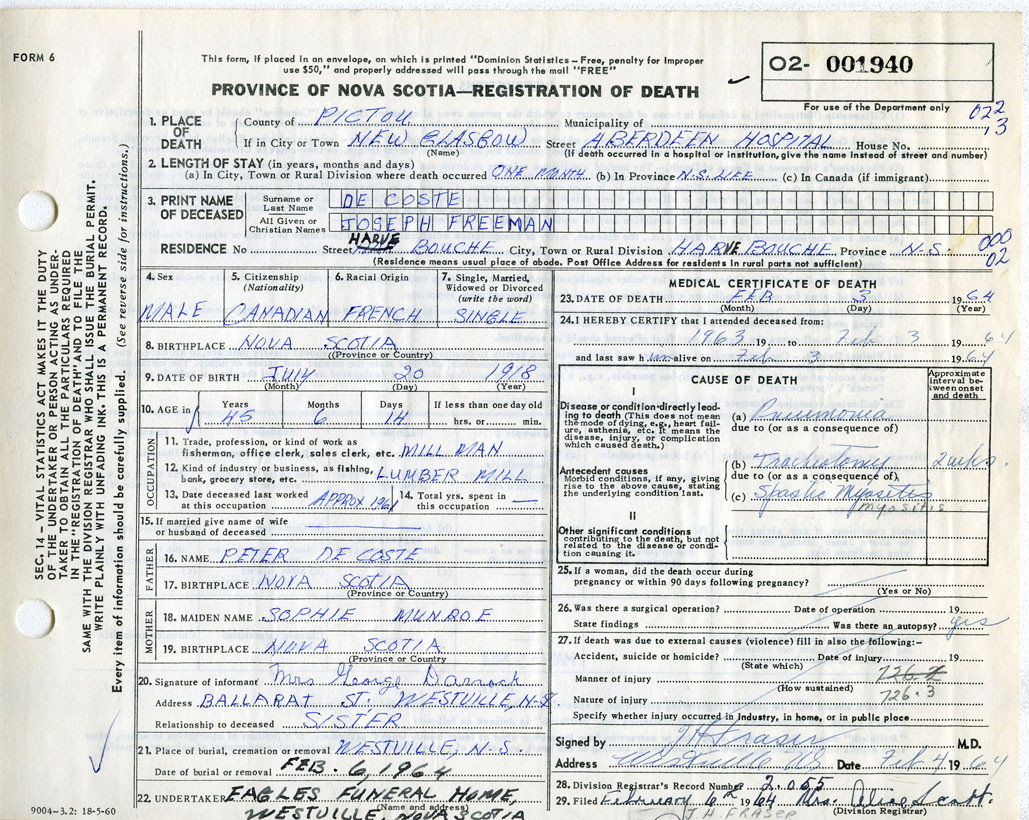 FORM 6
This form, if placed in an envelope, on which is printed "Dominion Statistics – Free, penalty for Improper
use $50," and properly addressed will pass through the mail "FREE"
O2- 001940
PROVINCE OF NOVA SCOTIA—REGISTRATION OF DEATH
For use of the Department only
022
13
1. PLACE OF DEATH County of PICTOU Municipality of
If in City or Town NEW GLASGOW Street ABERDEEN HOSPITAL House No.
(Name) (If death occurred in a hospital or institution, give the name instead of street and number)
2. LENGTH OF STAY (in years, months and days)
(a) In City, Town or Rural Division where death occurred ONE MONTH (b) In Province N.S. LIFE (c) In Canada (if immigrant)
3. PRINT NAME OF DECEASED Surname or Last Name DE COSTE
All Given or Christian Names JOSEPH FREEMAN
RESIDENCE No Street HARVE BOUCHE City, Town or Rural Division HARVE BOUCHE Province N.S. 000
02
(Residence means usual place of abode. Post Office Address for residents in rural parts not sufficient)
4. Sex MALE
5. Citizenship (Nationality) CANADIAN
6. Racial Origin FRENCH
7. Single, Married, Widowed or Divorced (write the word) SINGLE
8. BIRTHPLACE NOVA SCOTIA
(Province or Country)
9. DATE OF BIRTH JULY 20 1918
(Month) (Day) (Year)
10. AGE in Years 45 Months 6 Days 14 If less than one day old
hrs. or min.
OCCUPATION
11. Trade, profession, or kind of work as
fisherman, office clerk, sales clerk, etc. MILL MAN
12. Kind of industry or business, as fishing,
bank, grocery store, etc. LUMBER MILL
13. Date deceased last worked at this occupation APPROX 1961 14. Total yrs. spent in this occupation —
15. If married give name of wife
or husband of deceased
FATHER
16. NAME PETER DE COSTE
17. BIRTHPLACE NOVA SCOTIA
(Province or Country)
MOTHER
18. MAIDEN NAME SOPHIE MUNROE
19. BIRTHPLACE NOVA SCOTIA
(Province or Country)
20. Signature of informant Mrs George Darroch
Address BALLARAT ST. WESTVILLE, N.S.
Relationship to deceased SISTER
21. Place of burial, cremation or removal WESTVILLE, N.S.
Date of burial or removal FEB. 6, 1964
22. UNDERTAKER EAGLES FUNERAL HOME,
(Name and address)
WESTVILLE, NOVA SCOTIA
9004—3.2: 18-5-60
MEDICAL CERTIFICATE OF DEATH
23. DATE OF DEATH FEB 3 1964
(Month) (Day) (Year)
24. I HEREBY CERTIFY that I attended deceased from:
1963 19 to Feb 3 1964
and last saw him alive on Feb 3 1964
CAUSE OF DEATH
Approximate interval between onset and death
I
Disease or condition directly leading to death (This does not mean the mode of dying, e.g., heart failure, asthenia, etc. It means the disease, injury, or complication which caused death.)
(a) Pneumonia
due to (or as a consequence of)
Antecedent causes
Morbid conditions, if any, giving rise to the above cause, stating the underlying condition last.
(b) Trachiotomy 2 wks.
due to (or as a consequence of)
(c) Spastic Myositis
myositis
II
Other significant conditions
contributing to the death, but not related to the disease or condition causing it.
25. If a woman, did the death occur during
pregnancy or within 90 days following pregnancy?
(Yes or No)
26. Was there a surgical operation? Date of operation 19
State findings Was there an autopsy? yes
27. If death was due to external causes (violence) fill in also the following:–
Accident, suicide or homicide? Date of injury 19
(State which)
Manner of injury
(How sustained)
726.3
Nature of injury
Specify whether injury occurred in Industry, in home, or in public place
Signed by J H Fraser M.D.
Address Westville NS Date Feb 4 1964
28. Division Registrar's Record Number 2.055
29. Filed February 6th 1964 Mrs. Aline Scott.
(Division Registrar)
J.H. FRASER
SEC. 14 – VITAL STATISTICS ACT MAKES IT THE DUTY
OF THE UNDERTAKER OR PERSON ACTING AS UNDER-
TAKER TO OBTAIN ALL THE PARTICULARS REQUIRED
IN THE "REGISTRATION OF DEATH" AND TO FILE THE
SAME WITH THE DIVISION REGISTRAR WHO SHALL ISSUE THE BURIAL PERMIT.
WRITE PLAINLY WITH UNFADING INK. THIS IS A PERMANENT RECORD.
Every item of information should be carefully supplied. (See reverse side for instructions.)